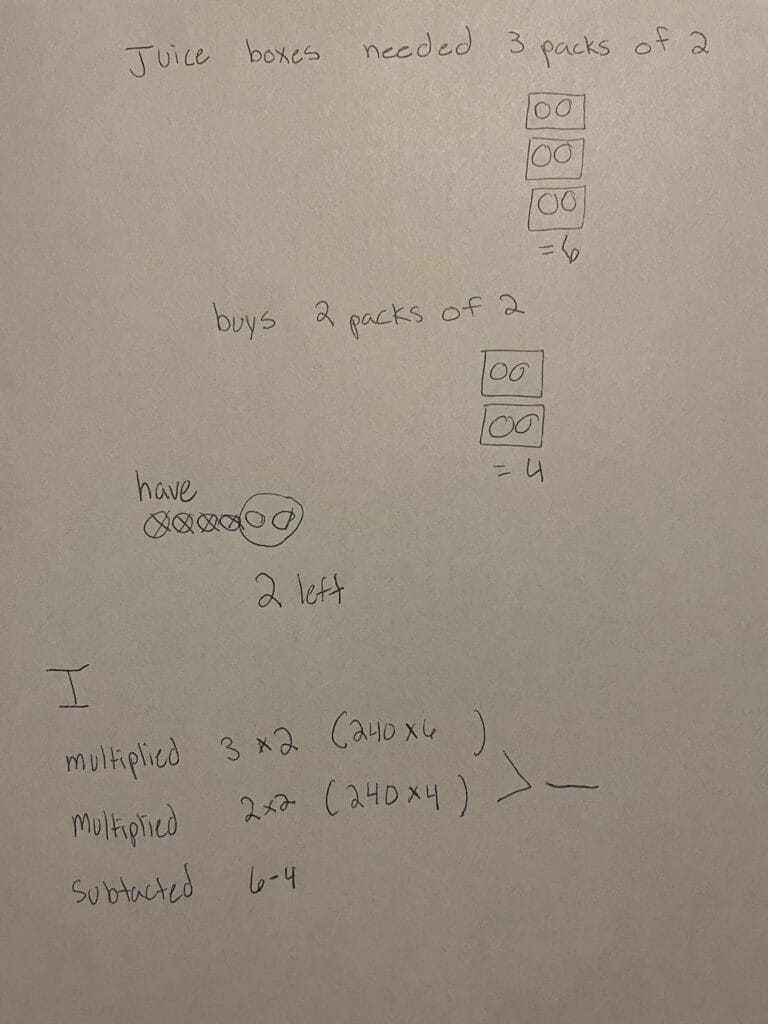 Juice boxes needed 3 packs of 2
= 6
buys 2 packs of 2
= 4
have
2 left
I
multiplied 3 x 2 (240 x 6 )
multiplied 2x2 (240 x 4 ) > —
Subtacted 6-4